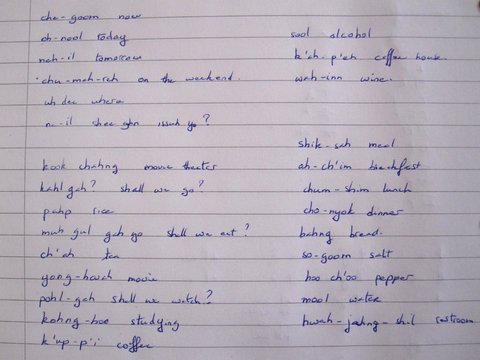 che-goom now
oh-nool today
neh-il tomorrow
chu-mah-reh on the weekend.
uh dee where
ne-il shee gan issuh yo?
kook chahng movie theater
kahl gah? shall we go?
pahp rice
muh gul gah yo shall we eat?
ch'ah tea
yong-hwah movie
pohl-gah shall we watch?
kohng-boo studying
k'up-p'i coffee
sool alcohol
k'ah-p'eh coffee house.
wah-inn wine.
shik-sah meal
ah-ch'im breakfast
chum-shim lunch
cho-nyok dinner
bahng bread.
so-goom salt
hoo ch'oo pepper
mool water
hwah-jahng-shil restroom